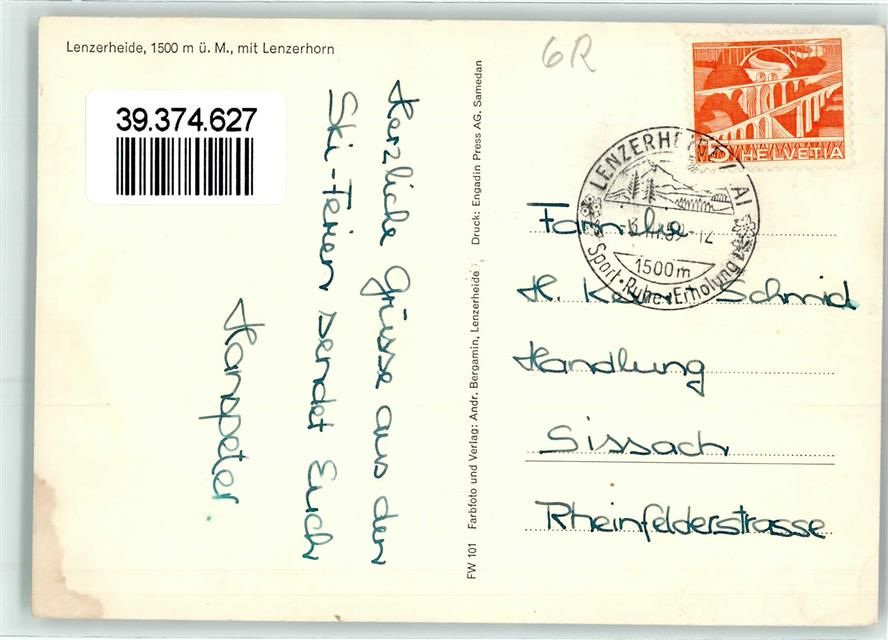 Lenzerheide, 1500 m ü. M., mit Lenzerhorn
39.374.627
6R
Herzliche Grüsse aus den
Ski-Ferien sendet Euch
Hanspeter.
FW 101 Farbfoto und Verlag: Andr. Bergamin, Lenzerheide Druck: Engadin Press AG. Samedan
5 HELVETIA
LENZERHEIDE
59-12
1500 m
Sport • Ruhe • Erholung
Familie
H. Schmid
Handlung
Sissach
Rheinfelderstrasse